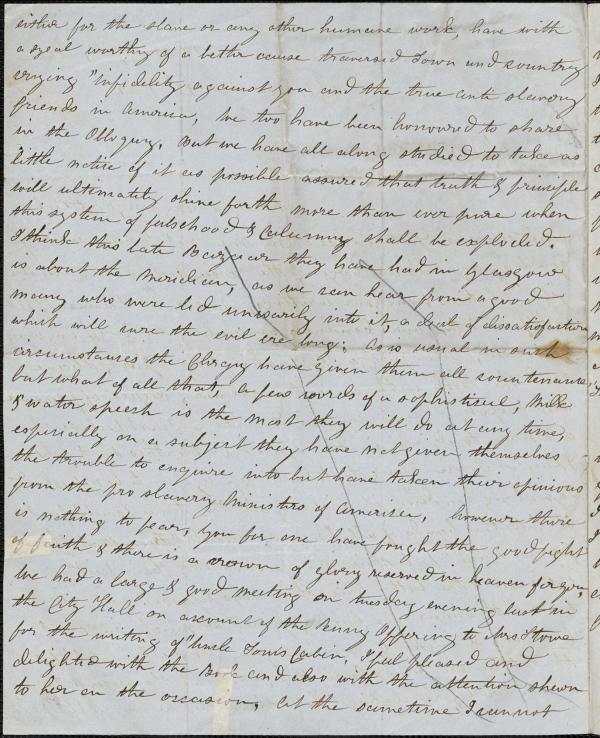 either for the slave or any other humane work, have with
a zeal worthy of a better cause traversed Town and country
crying "infidelity against you and the true anti slavery
friends in America, we two have been honoured to share
in the Obloquy. But we have all along studied to take as
little notice of it as possible assured that truth & principle
will ultimately shine forth more than ever pure when
this system of falsehood & Calumny shall be exploded.
I think this late Bazaar they have had in Glasgow
is about the Meridian, as we can hear from a good
many who were led unawarily into it, a deal of dissatisfaction
which will cure the evil ere long; as is usual in such
circumstances the Clergy have given them all countenance
but what of all that, a few words of a sophistical, Milk
& water speech is the most they will do at any time,
especially on a subject they have not given themselves
the trouble to enquire into but have taken their opinions
from the pro slavery Ministers of America, however there
is nothing to fear, you for one have fought the good fight
of faith & there is a crown of glory reserved in heaven for you,
We had a large & good meeting on tuesday evening last in
the City Hall on account of the Penny Offering to Mrs Stowe
for the writing of "Uncle Toms Cabin, I feel pleased and
delighted with the Book and also with the attention shewn
to her on the occasion, at the sametime I cannot